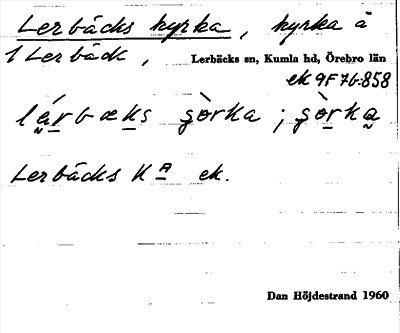 Lerbäcks kyrka, kyrka å
1 Lerbäck, Lerbäcks sn, Kumla hd, Örebro län
ek 9F 7G 858
Lerbäcks Kᴬ ek.
Dan Höjdestrand 1960